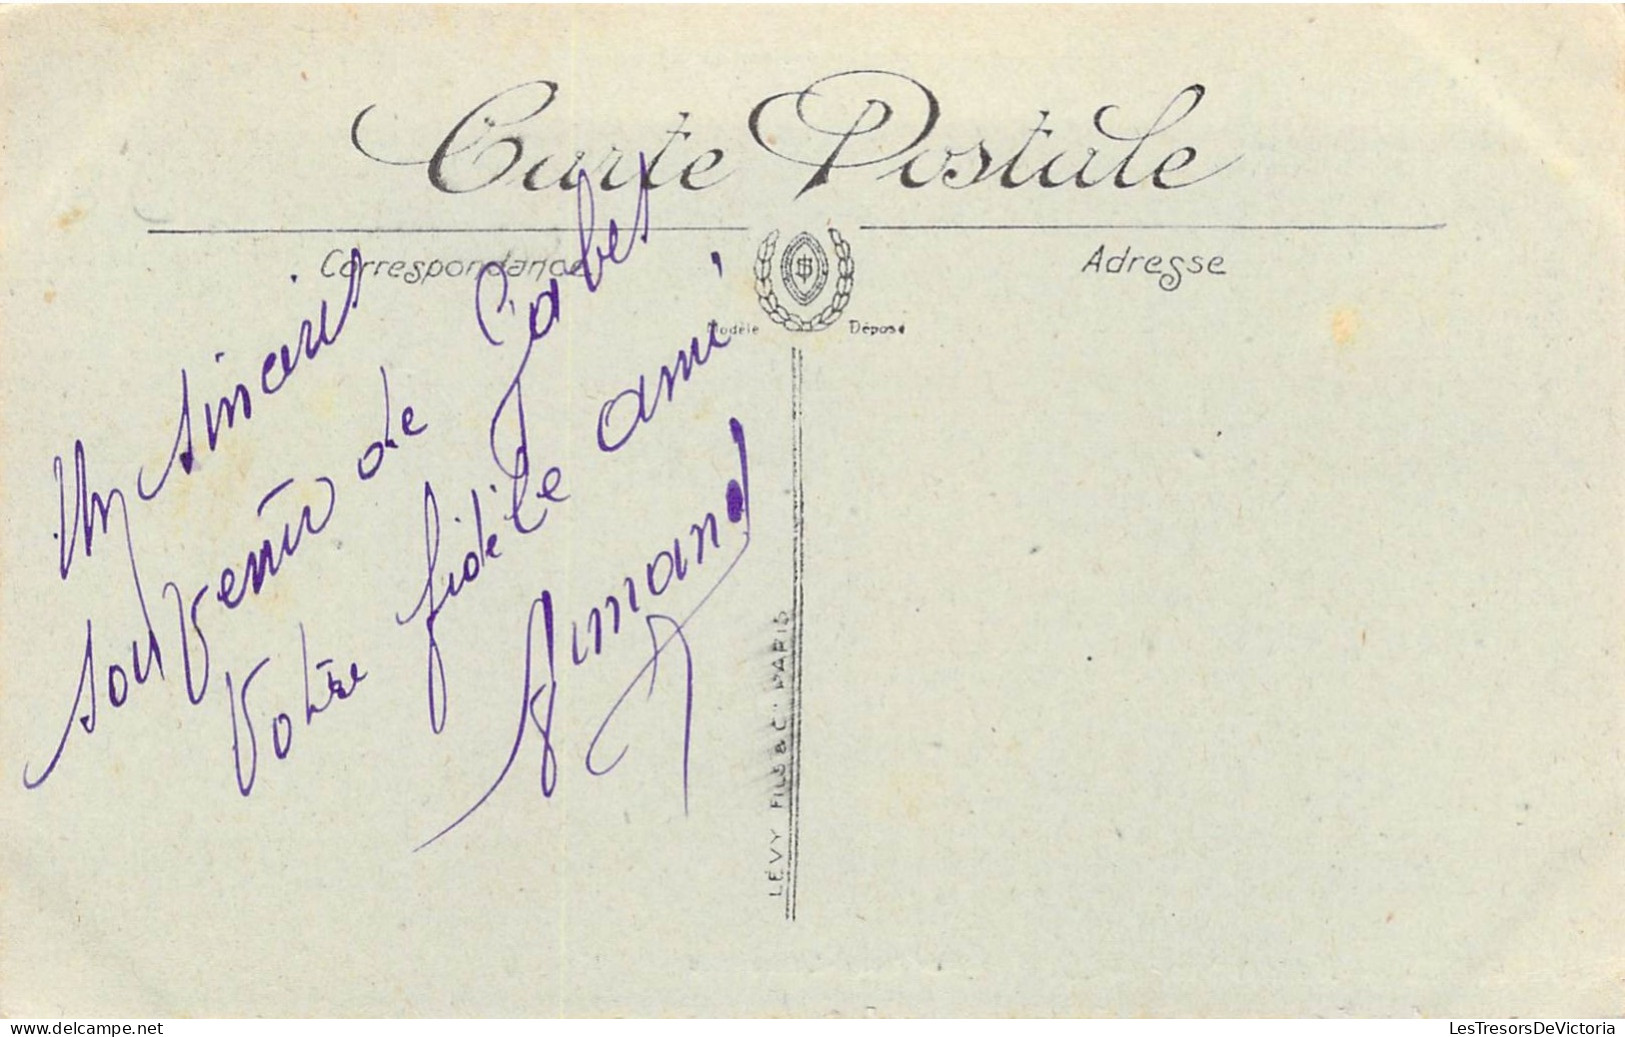 Carte Postale
Correspondance
Adresse
Modèle Déposé
Un sincère
souvenir de Gabès
Votre fidèle ami,
Armand
LÉVY FILS & Cie PARIS
www.delcampe.net
LesTresorsDeVictoria